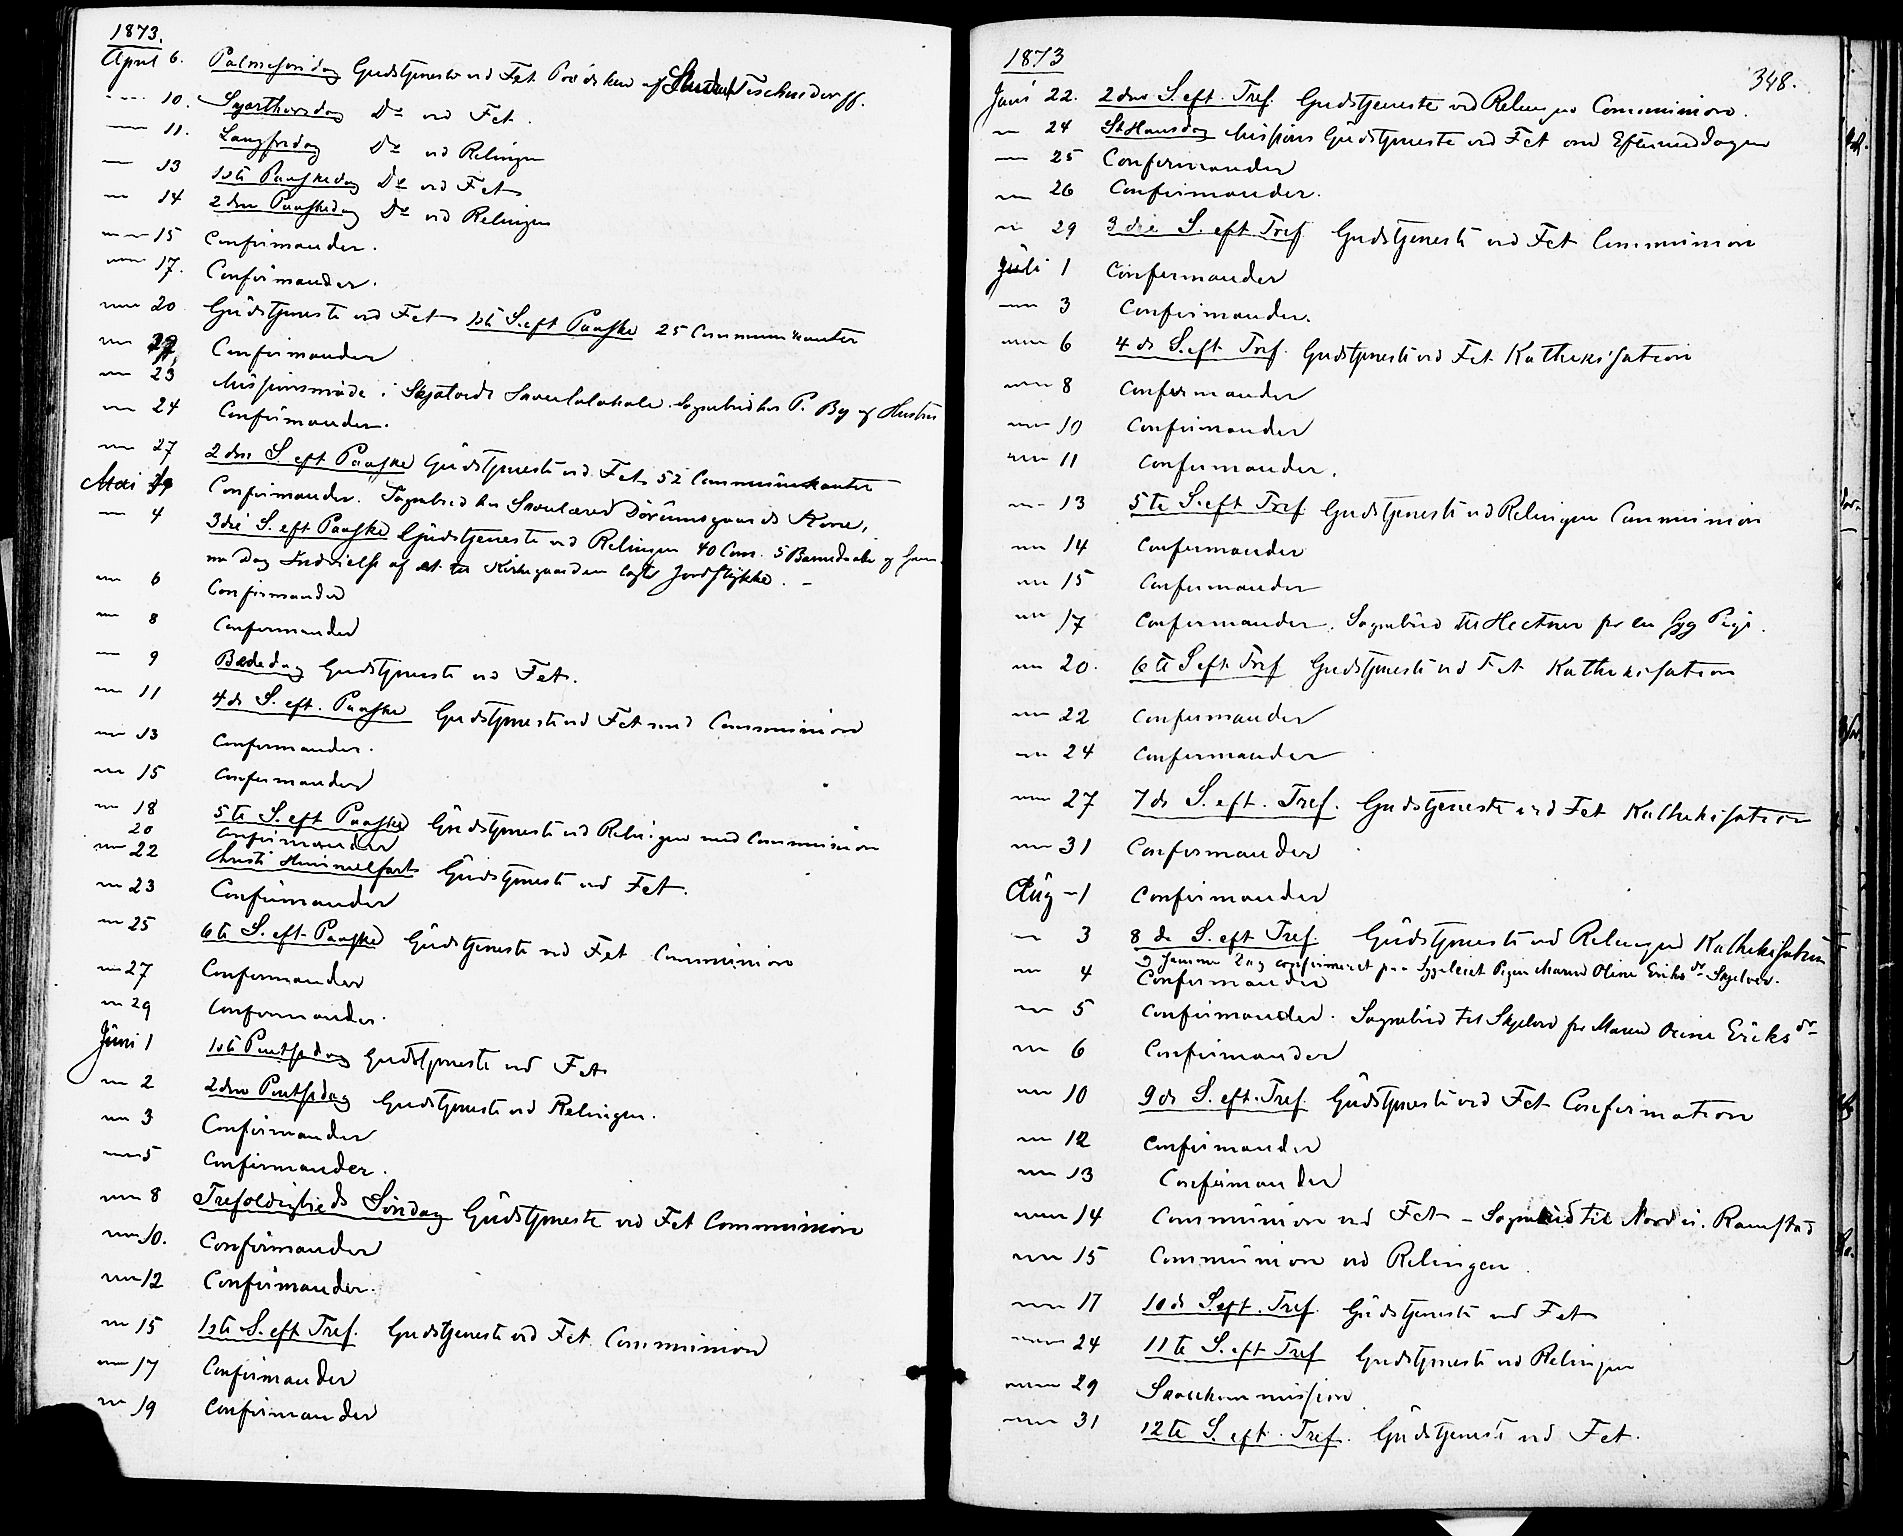 1873.
April 6. Palmesöndag Gudstjeneste ved Fet. Prædiken af Student Tischendorff.
" 10. Skjærthorsdag Do ved Fet.
" 11. Langfredag Do ved Relingen
" 13 1ste Paaskedag Do ved Fet
" 14 2den Paaskedag Do ved Relingen
" 15 Confirmander.
" 17. Confirmander.
" 20 Gudstjeneste ved Fet 1ste S. eft Paaske 25 Communikanter
" 22 Confirmander
" 23 Missionsmöde i Skjatveds Skolelokale. Sognebud hos P. By og Hustru
" 24 Confirmander.
" 27 2den S. eft Paaske Gudstjeneste ved Fet 52 Communikanter
Mai 1 Confirmander. Sognebud hos Skolelærer Dörumsgaards Kone,
" 4 3die S. eft Paaske Gudstjeneste ved Relingen 40 Com. 5 Barnedaabe og sam-
me Dag Indvielse af et til Kirkegaarden lagt Jordstykke. –
" 6 Confirmander
" 8 Confirmander
" 9 Bededag Gudstjeneste ved Fet.
" 11 4de S. eft. Paaske Gudstjeneste ved Fet med Communion
" 13 Confirmander.
" 15 Confirmander
" 18 5te S. eft Paaske Gudstjeneste ved Relingen med Communion
20 Confirmander
" 22 Christi Himmelfart Gudstjeneste ved Fet.
" 23 Confirmander
" 25 6te S. eft. Paaske Gudstjeneste ved Fet Communion
" 27 Confirmander
" 29 Confirmander.
Juni 1 1ste Pintsedag Gudstjeneste ved Fet
" 2 2den Pintsedag Gudstjeneste ved Relingen.
" 3 Confirmander
" 5 Confirmander.
" 8 Trefoldigheds Söndag Gudstjeneste ved Fet Communion
" 10. Confirmander
" 12 Confirmander.
" 15 1ste S. eft Tref. Gudstjeneste ved Fet. Communion
" 17 Confirmander
" 19 Confirmander
1873
348.
Juni 22. 2den S. eft. Tref. Gudstjeneste ved Relingen Communion.
" 24 St Hansdag Missions Gudstjeneste ved Fet om Eftermiddagen
" 25 Confirmander
" 26 Confirmander.
" 29 3die S. eft Tref Gudstjeneste ved Fet Communion
Juli 1 Confirmander
" 3 Confirmander.
" 6 4de S. eft. Tref. Gudstjeneste ved Fet Kathekisation
" 8 Confirmander
" 10 Confirmander
" 11 Confirmander.
" 13 5te S. eft Tref Gudstjeneste ved Relingen Communion
" 14 Confirmander
" 15 Confirmander
" 17 Confirmander. Sognebud til Hectner for en syg Pige.
" 20. 6te S eft Tref Gudstjeneste ved Fet Kathekisation
" 22 Confirmander
" 24 Confirmander
" 27 7de S. eft. Tref. Gudstjeneste ved Fet Kathekisation
" 31 Confirmander
Aug – 1 Confirmander
" 3 8de S. eft Tref. Gudstjeneste ved Relingen Kathekisation
Samme Dag confirmeret paa Sygeleiet Pigen Maren Oline Eriksdr Skjelver.
" 4 Confirmander
" 5 Confirmander. Sognebud til Skjelver for Maren Oline Eriksdr
" 6 Confirmander
" 10 9de S. eft. Tref. Gudstjeneste ved Fet Confirmation
" 12 Confirmander
" 13 Confirmander
" 14 Communion ved Fet – Sognebud til Nordre Ramstad
" 15 Communion ved Relingen.
" 17 10de S. eft. Tref. Gudstjeneste ved Fet
" 24 11te S. eft Tref Gudstjeneste ved Relingen
" 29 Skolekommission
" 31 12te S. eft. Tref. Gudstjeneste ved Fet.